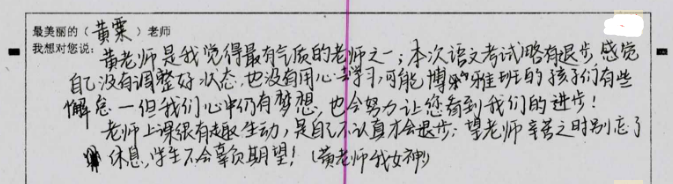 最美丽的（黄霂）老师
我想对您说：黄老师是我觉得最有气质的老师之一；本次语文考试略有退步，感觉
自己没有调整好状态，也没有用心去学习，可能博雅班的孩子们有些
懈怠—但我们心中仍有梦想，也会努力让您看到我们的进步！
老师上课很有趣生动，是自己不认真才会退步；望老师辛苦之时别忘了
休息，学生不会辜负期望！（黄老师我女神）